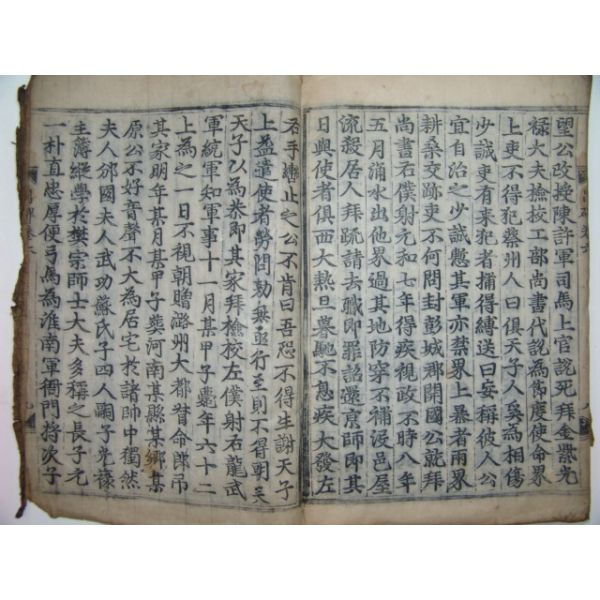 望公改授陳許軍司馬上官說死拜金紫光
祿大夫檢校工部尚書代說為節度使命界
上吏不得犯蔡州人曰俱天子人奚為相傷
少誠吏有來犯者捕得縛送曰妄稱彼人公
宜自治之少誠慙其軍亦禁界上暴者兩界
耕桑交跡吏不何問封彭城郡開國公就拜
尚書右僕射元和七年得疾視政不時八年
五月涌水出他界過其地防穿不補沒邑屋
流殺居人拜疏請去職即罪詔還京師即其
日與使者俱西大熱旦暮馳不息疾大發左
右手轡止之公不肯曰吾恐不得生謝天子
上益遣使者勞問勑無亟行至則不得朝矣
天子以為恭即其家拜檢校左僕射右龍武
軍統軍知軍事十一月某甲子薨年六十二
上為之一日不視朝贈潞州大都督命郎弔
其家明年某月某甲子葬河南某縣某鄉某
原公不好音聲不大為居宅於諸帥中獨然
夫人邠國夫人武功蘇氏子四人嗣子光祿
主簿縱學於樊宗師士大夫多稱之長子元
一朴直忠厚便弓馬為淮南軍衙門將次子